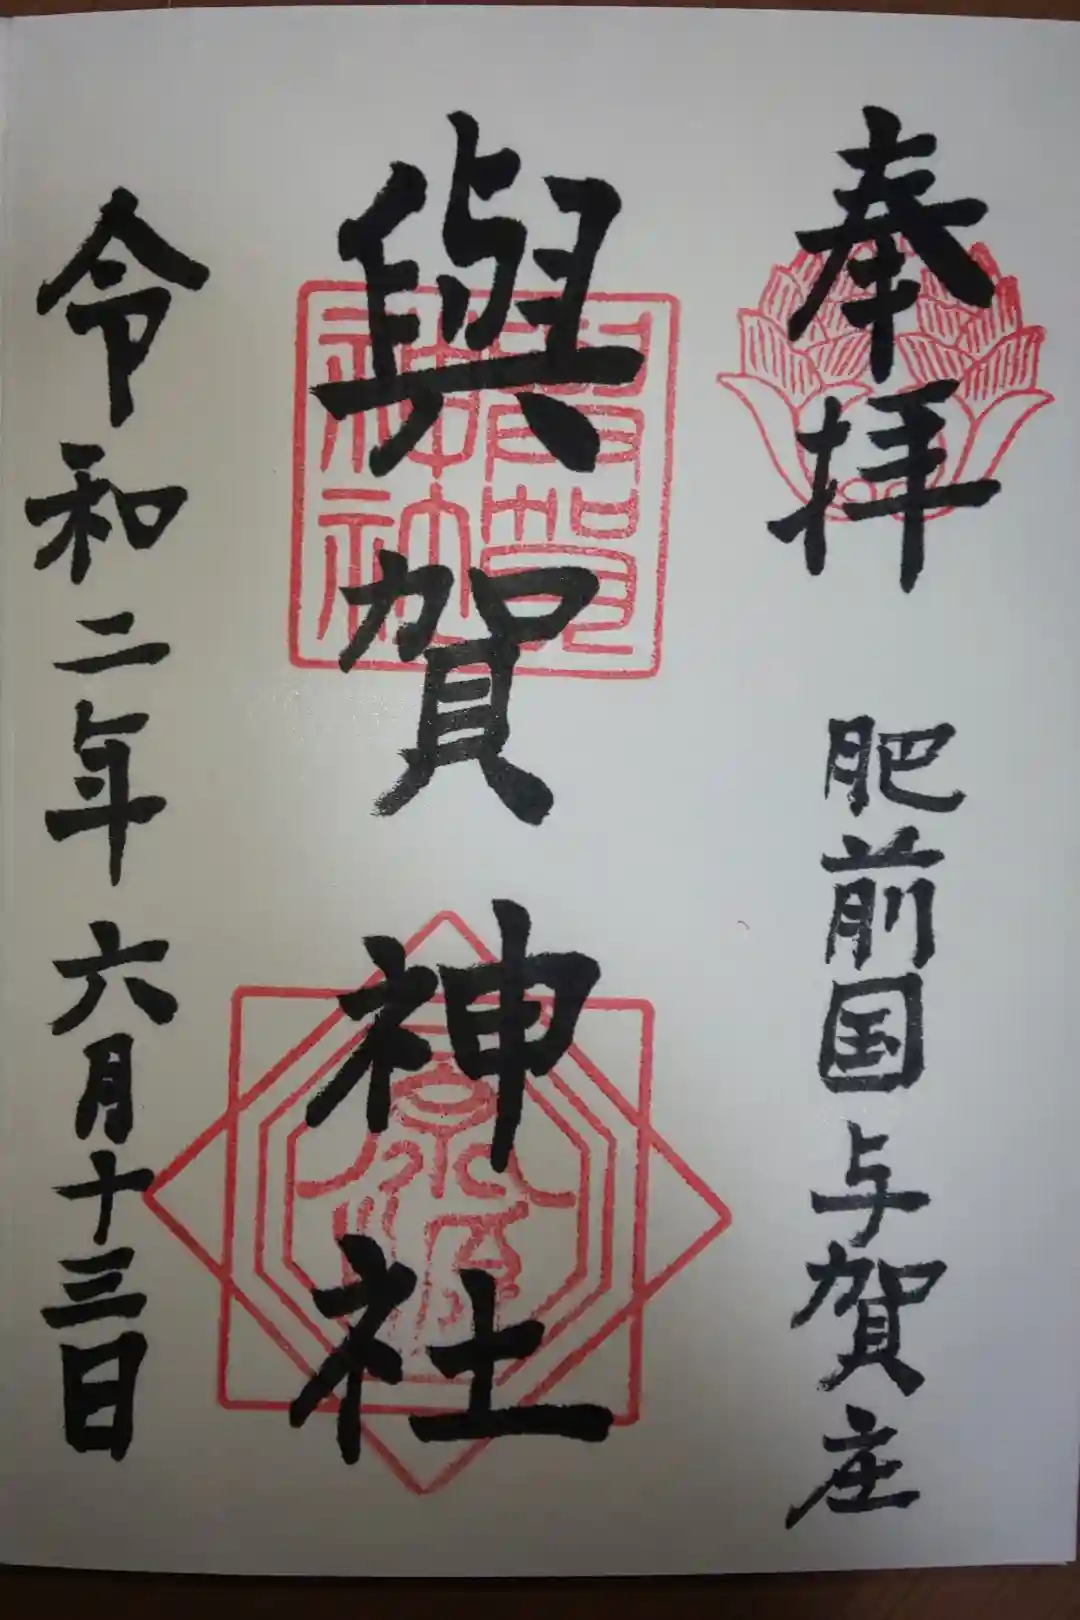 奉拝 肥前国与賀庄
與賀神社
與賀神社
令和二年六月十三日